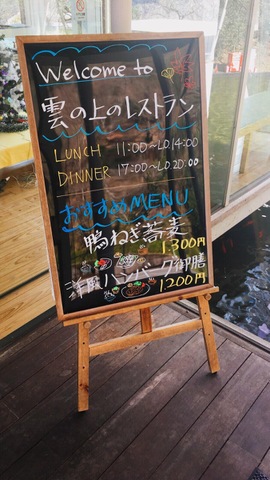 Welcome to
雲の上のレストラン
LUNCH 11:00〜L.O.14:00
DINNER 17:00〜L.O.20:00
おすすめMENU
鴨ねぎ蕎麦
1,300円
洋風ハンバーグ御膳
1,200円